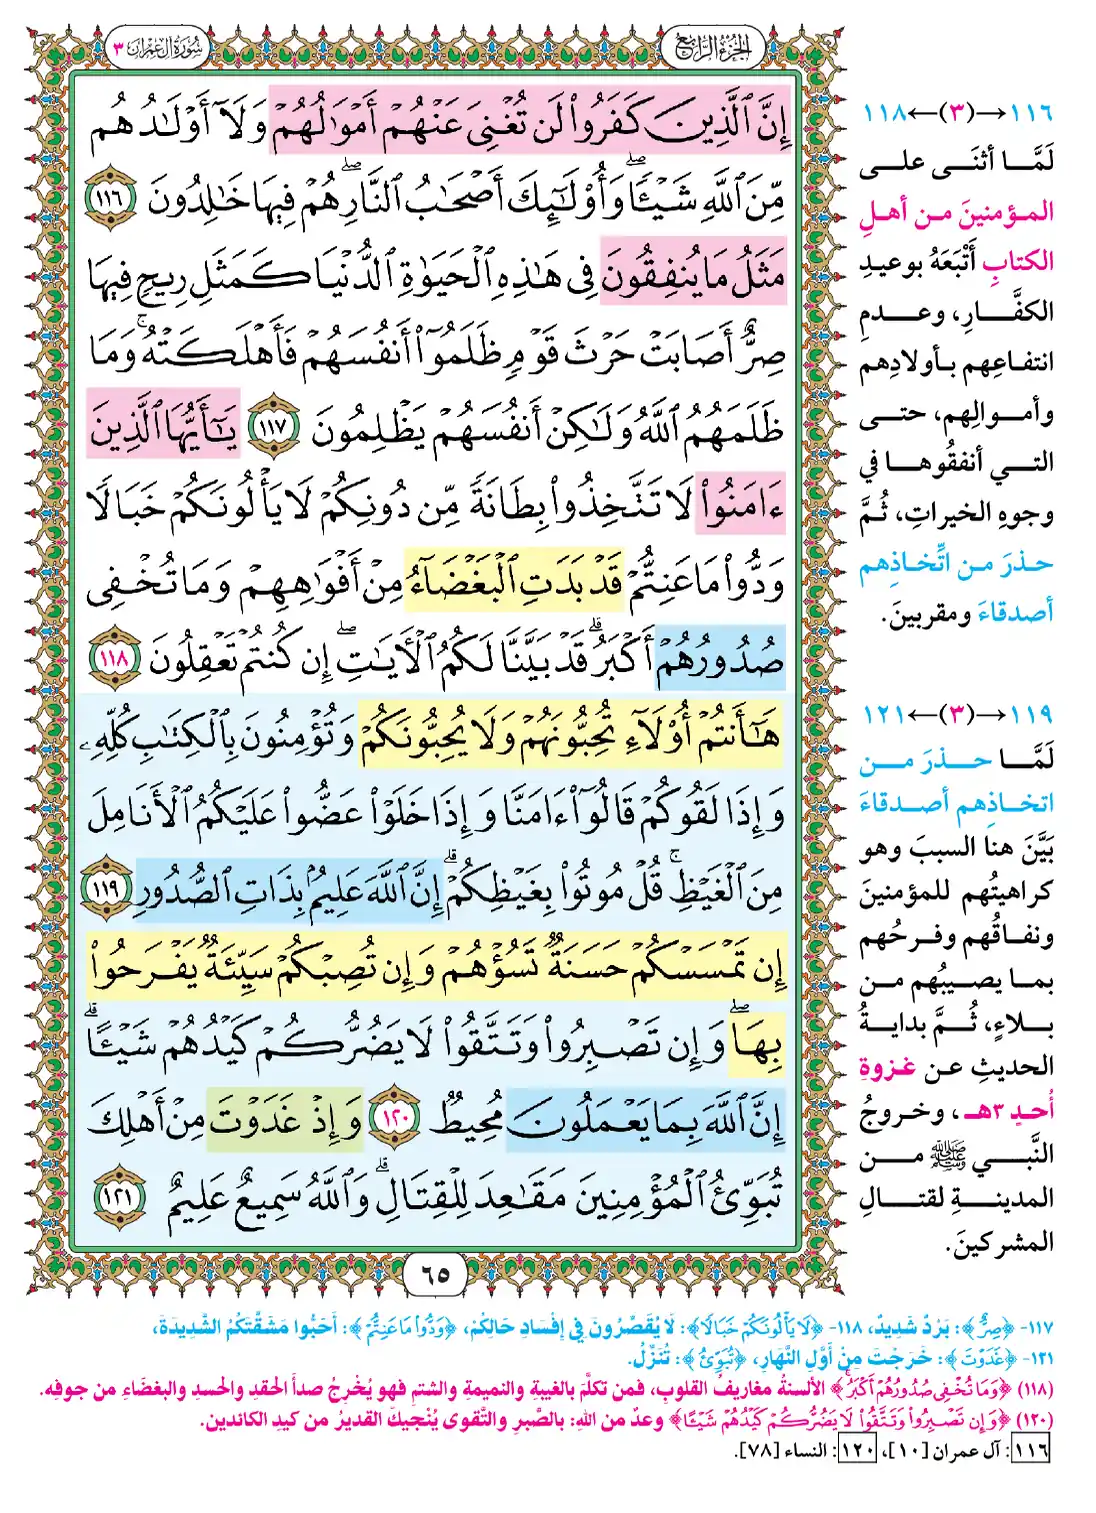 الجزء الرابع
سورة آل عمران ٣
إِنَّ ٱلَّذِينَ كَفَرُوا۟ لَن تُغْنِىَ عَنْهُمْ أَمْوَٰلُهُمْ وَلَآ أَوْلَـٰدُهُم
مِّنَ ٱللَّهِ شَيْـًٔا ۖ وَأُو۟لَـٰٓئِكَ أَصْحَـٰبُ ٱلنَّارِ ۖ هُمْ فِيهَا خَـٰلِدُونَ ١١٦
مَثَلُ مَا يُنفِقُونَ فِى هَـٰذِهِ ٱلْحَيَوٰةِ ٱلدُّنْيَا كَمَثَلِ رِيحٍ فِيهَا
صِرٌّ أَصَابَتْ حَرْثَ قَوْمٍ ظَلَمُوٓا۟ أَنفُسَهُمْ فَأَهْلَكَتْهُ ۚ وَمَا
ظَلَمَهُمُ ٱللَّهُ وَلَـٰكِنْ أَنفُسَهُمْ يَظْلِمُونَ ١١٧ يَـٰٓأَيُّهَا ٱلَّذِينَ
ءَامَنُوا۟ لَا تَتَّخِذُوا۟ بِطَانَةً مِّن دُونِكُمْ لَا يَأْلُونَكُمْ خَبَالًا
وَدُّوا۟ مَا عَنِتُّمْ قَدْ بَدَتِ ٱلْبَغْضَآءُ مِنْ أَفْوَٰهِهِمْ وَمَا تُخْفِى
صُدُورُهُمْ أَكْبَرُ ۚ قَدْ بَيَّنَّا لَكُمُ ٱلْـَٔايَـٰتِ ۖ إِن كُنتُمْ تَعْقِلُونَ ١١٨
هَـٰٓأَنتُمْ أُو۟لَآءِ تُحِبُّونَهُمْ وَلَا يُحِبُّونَكُمْ وَتُؤْمِنُونَ بِٱلْكِتَـٰبِ كُلِّهِۦ
وَإِذَا لَقُوكُمْ قَالُوٓا۟ ءَامَنَّا وَإِذَا خَلَوْا۟ عَضُّوا۟ عَلَيْكُمُ ٱلْأَنَامِلَ
مِنَ ٱلْغَيْظِ ۚ قُلْ مُوتُوا۟ بِغَيْظِكُمْ ۗ إِنَّ ٱللَّهَ عَلِيمٌۢ بِذَاتِ ٱلصُّدُورِ ١١٩
إِن تَمْسَسْكُمْ حَسَنَةٌ تَسُؤْهُمْ وَإِن تُصِبْكُمْ سَيِّئَةٌ يَفْرَحُوا۟
بِهَا ۖ وَإِن تَصْبِرُوا۟ وَتَتَّقُوا۟ لَا يَضُرُّكُمْ كَيْدُهُمْ شَيْـًٔا ۗ
إِنَّ ٱللَّهَ بِمَا يَعْمَلُونَ مُحِيطٌ ١٢٠ وَإِذْ غَدَوْتَ مِنْ أَهْلِكَ
تُبَوِّئُ ٱلْمُؤْمِنِينَ مَقَـٰعِدَ لِلْقِتَالِ ۗ وَٱللَّهُ سَمِيعٌ عَلِيمٌ ١٢١
٦٥
١١٦→(٣)←١١٨
لَمَّا أثنَى على
المؤمنينَ من أهلِ
الكتابِ أَتْبَعَهُ بوعيدِ
الكفَّارِ، وعدمِ
انتفاعِهم بأولادِهم
وأموالِهم، حتى
التي أنفقُوها في
وجوهِ الخيراتِ، ثُمَّ
حذرَ من اتِّخاذِهم
أصدقاءَ ومقربينَ.
١١٩→(٣)←١٢١
لَمَّا حذرَ من
اتخاذِهم أصدقاءَ
بَيَّنَ هنا السببَ وهو
كراهيتُهم للمؤمنينَ
ونفاقُهم وفرحُهم
بما يصيبُهم من
بلاءٍ، ثُمَّ بدايةُ
الحديثِ عن غزوةِ
أُحدٍ ٣هـ، وخروجُ
النَّبي ﷺ من
المدينةِ لقتالِ
المشركينَ.
١١٧- ﴿صِرٌّ﴾: بَرْدٌ شَدِيدٌ، ١١٨- ﴿لَا يَأْلُونَكُمْ خَبَالًا﴾: لَا يُقَصِّرُونَ فِي إِفْسَادِ حَالِكُمْ، ﴿وَدُّوا۟ مَا عَنِتُّمْ﴾: أَحَبُّوا مَشَقَّتَكُمُ الشَّدِيدَةَ،
١٢١- ﴿غَدَوْتَ﴾: خَرَجْتَ مِنْ أَوَّلِ النَّهَارِ، ﴿تُبَوِّئُ﴾: تُنَزِّلُ.
(١١٨) ﴿وَمَا تُخْفِى صُدُورُهُمْ أَكْبَرُ﴾ الألسنةُ مغاريفُ القلوبِ، فمن تكلَّمَ بالغيبةِ والنميمةِ والشتمِ فهو يُخرجُ صدأَ الحقدِ والحسدِ والبغضَاءِ من جوفِه.
(١٢٠) ﴿وَإِن تَصْبِرُوا۟ وَتَتَّقُوا۟ لَا يَضُرُّكُمْ كَيْدُهُمْ شَيْـًٔا﴾ وعدٌ من اللهِ: بالصَّبرِ والتَّقوى يُنْجيكَ القديرُ من كيدِ الكائدين.
١١٦: آل عمران [١٠]، ١٢٠: النساء [٧٨].